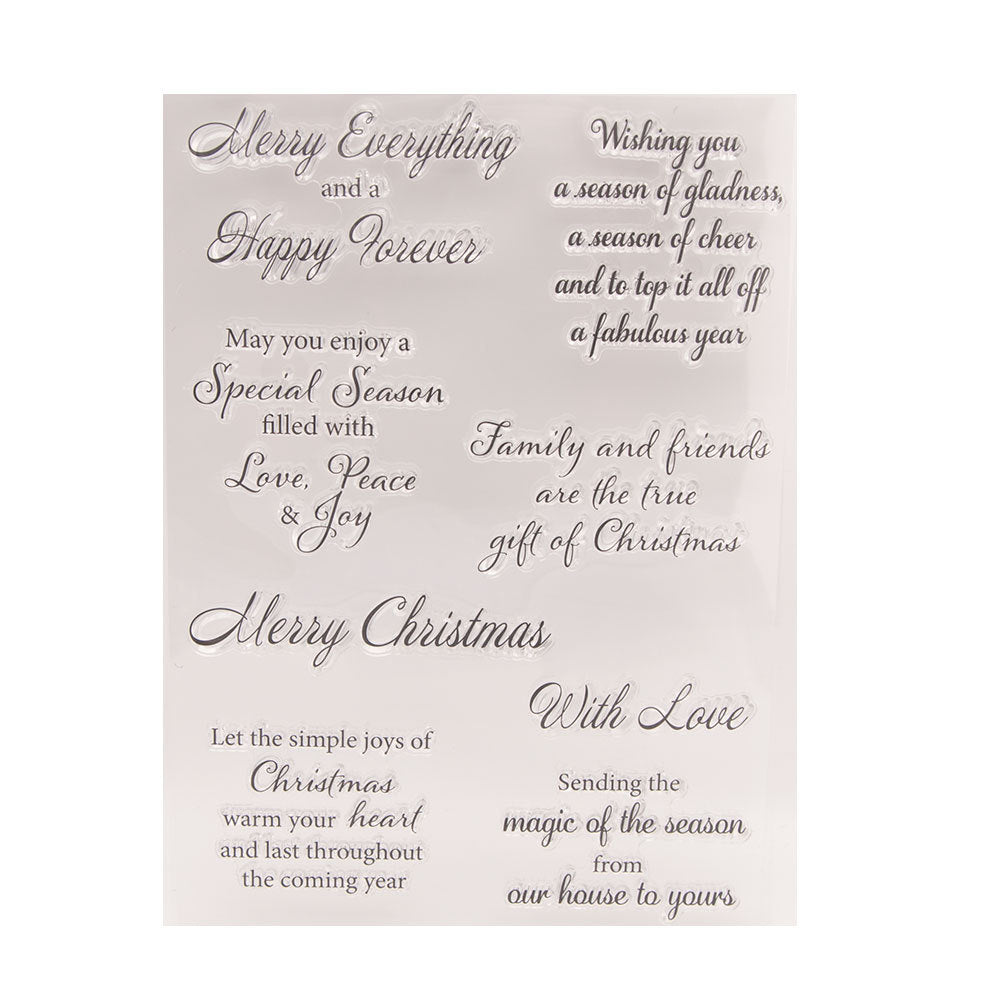 Merry Everything
and a
Happy Forever
Wishing you
a season of gladness,
a season of cheer
and to top it all off
a fabulous year
May you enjoy a
Special Season
filled with
Love, Peace
& Joy
Family and friends
are the true
gift of Christmas
Merry Christmas
With Love
Let the simple joys of
Christmas
warm your heart
and last throughout
the coming year
Sending the
magic of the season
from
our house to yours